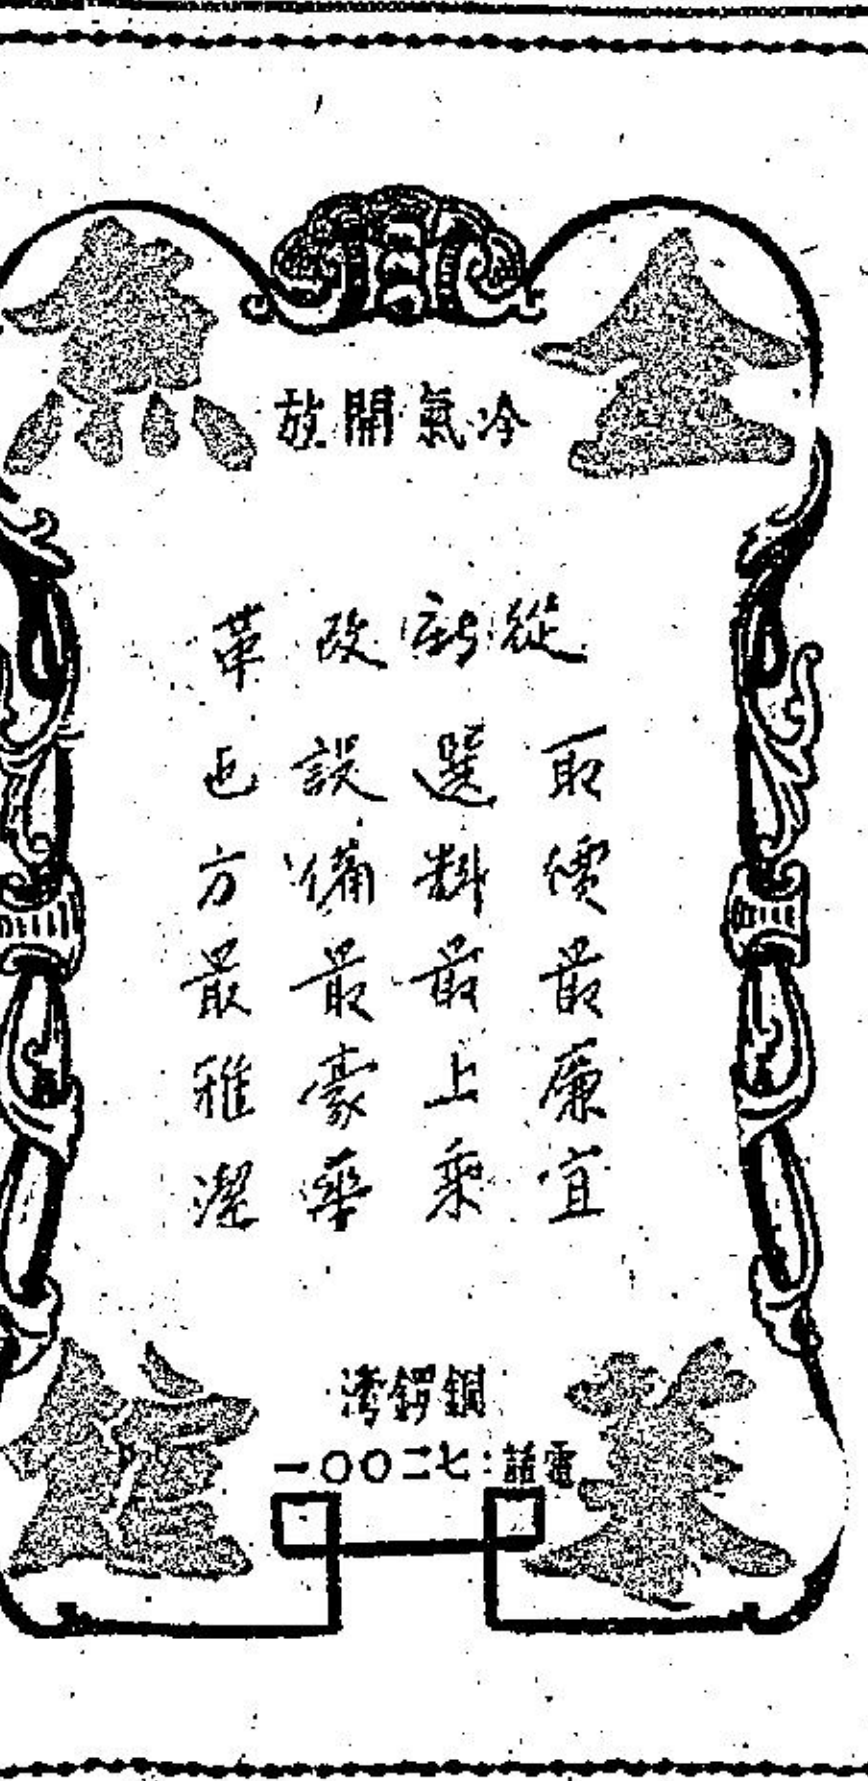 金魚
冷氣開放
從新改革
取價最廉宜
選料最上乘
設備最豪華
地方最雅潔
菜館
銅鑼灣
電話：七二〇〇一